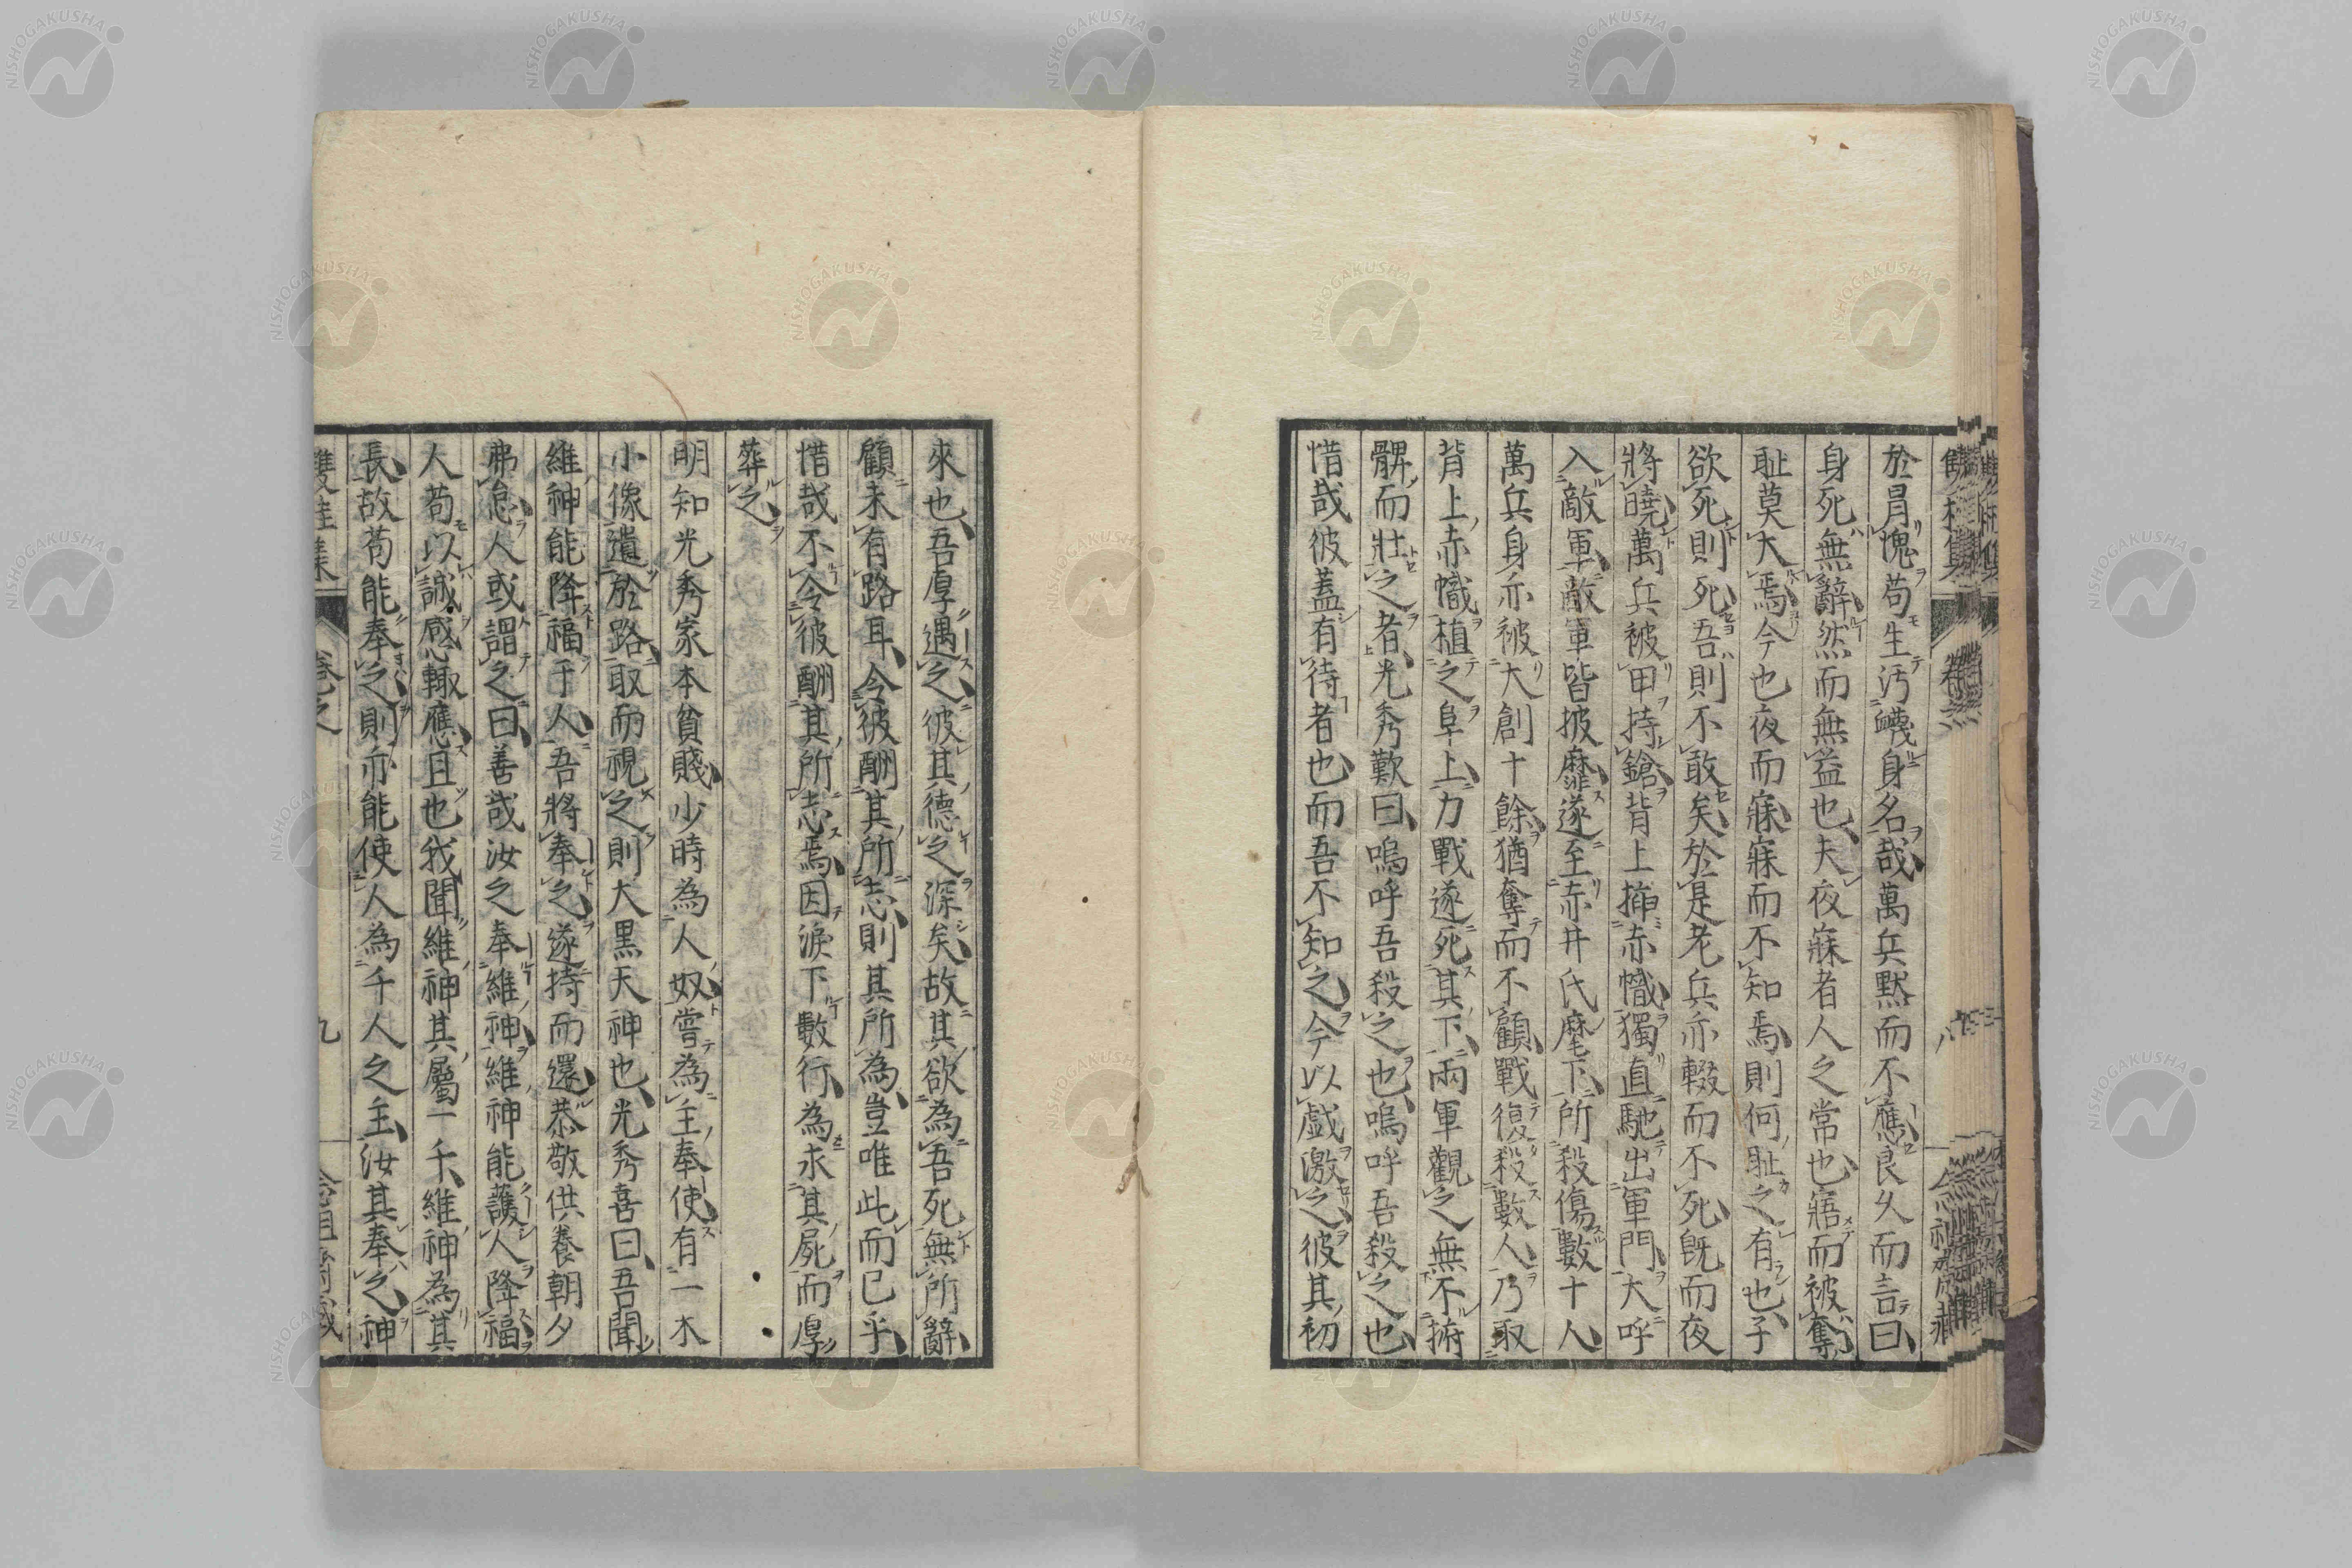 於肩愧苟生汚衊身名哉萬兵默而不應良久而言曰
身死無辭然而無益也夫夜寐者人之常也寤而被奪
耻莫大焉今也夜而寐寐而不知焉則何耻之有也子
欲死則死吾則不敢矣於是老兵亦輟而不死旣而夜
將曉萬兵被甲持鎗背上揷赤幟獨直馳出軍門大呼
入敵軍敵軍皆披靡遂至赤井氏麾下所殺傷數十人
萬兵身亦被大創十餘猶奪而不顧戰復殺數人乃取
背上赤幟植之阜上力戰遂死其下兩軍觀之無不拊
髀而壯之者光秀歎曰嗚呼吾殺之也嗚呼吾殺之也
惜哉彼蓋有待者也而吾不知之今以戲激之彼其初
來也吾厚遇之彼其德之深矣故其欲為吾死無所辭
顧未有路耳今彼酬其所志則其所為豈唯此而已乎
惜哉不令彼酬其所志焉因淚下數行為求其屍而厚
葬之
明知光秀家本貧賤少時為人奴嘗為主奉使有一木
小像遺於路取而視之則大黑天神也光秀喜曰吾聞
維神能降福于人吾將奉之遂持而還恭敬供養朝夕
弗怠人或謂之曰善哉汝之奉維神維神能護人降福
人苟以誠感輙應且也我聞維神其屬一千維神為其
長故苟能奉之則亦能使人為千人之主汝其奉之神
九
NISHOGAKUSHA